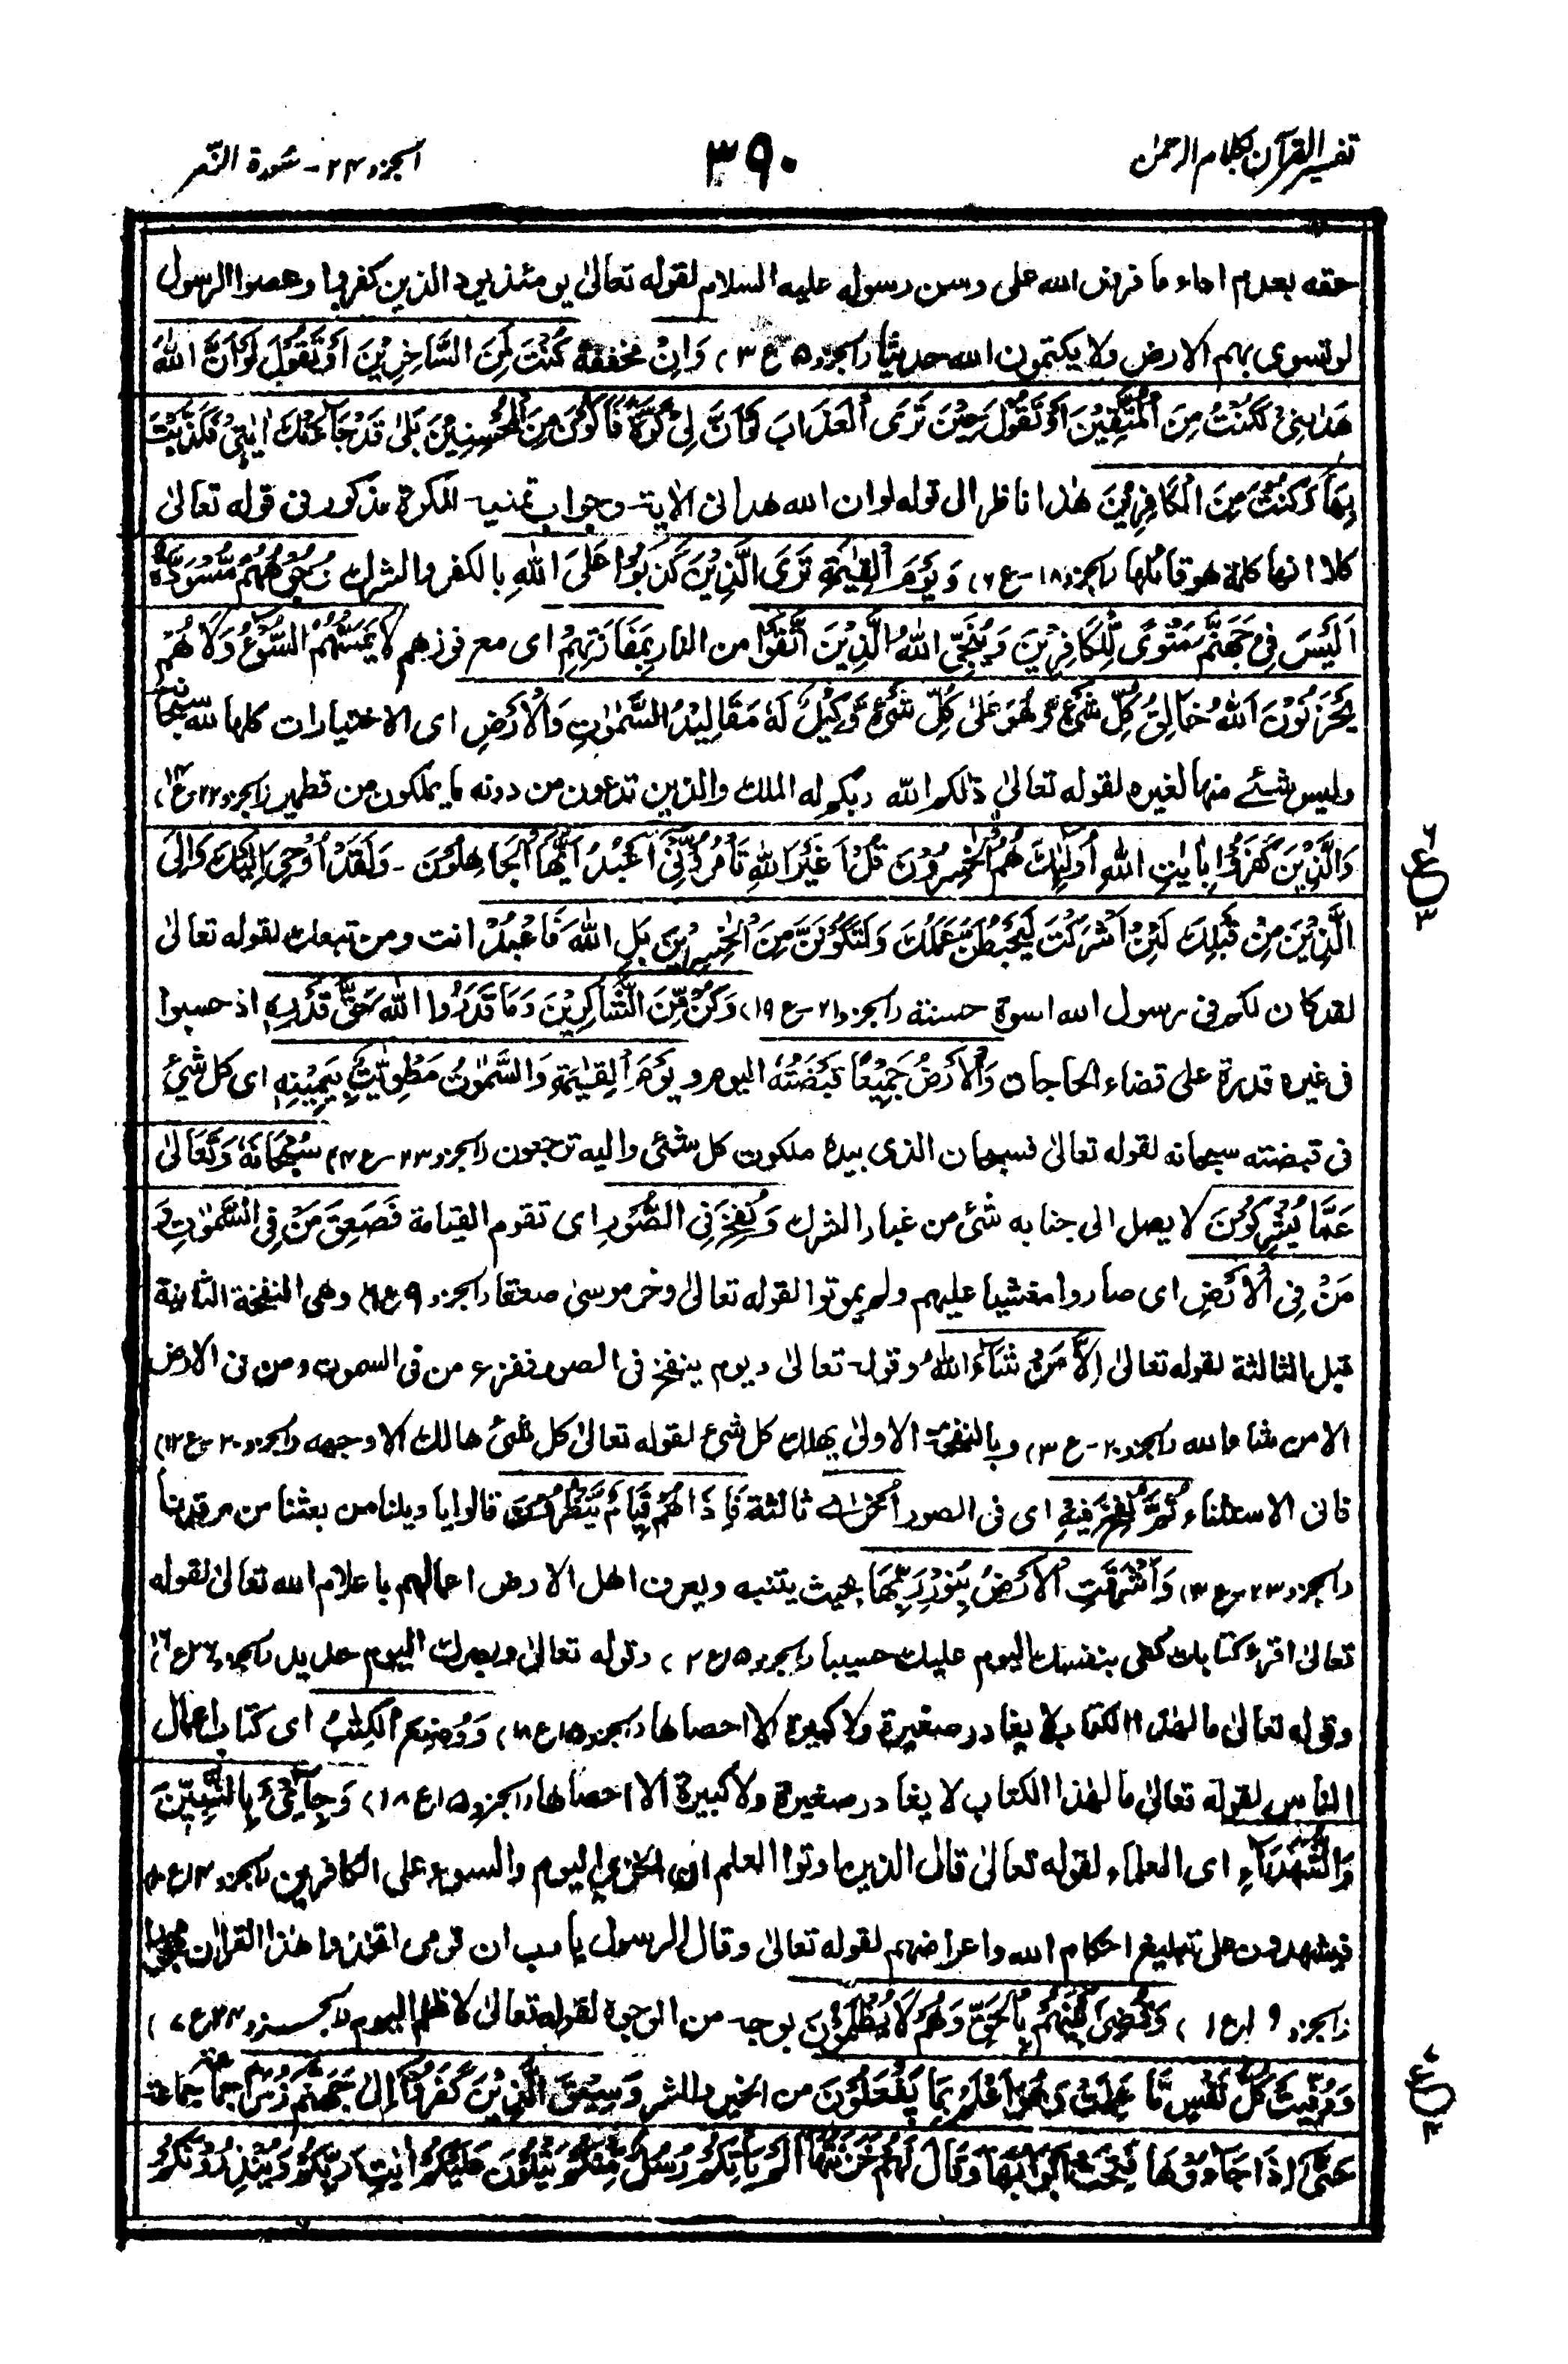 تفسير القرآن بكلام الرحمٰن
٣٩٠
الجزء ٢٤ - سورة الزمر
حقه بعدم اداء ما فرض الله على وسن رسوله عليه السلام لقوله تعالىٰ يومئذ يود الذين كفروا وعصوا الرسول
لو تسوى بهم الارض ولا يكتمون الله حديثا (الجزء ٥ ع ٣) وَاِنْ مخففة كُنْتُ لَمِنَ السَّاخِرِيْنَ اَوْ تَقُوْلَ لَوْ اَنَّ اللهَ
هَدٰىنِىْ لَكُنْتُ مِنَ الْمُتَّقِيْنَ اَوْ تَقُوْلَ حِيْنَ تَرَى الْعَذَابَ لَوْ اَنَّ لِىْ كَرَّةً فَاَكُوْنَ مِنَ الْمُحْسِنِيْنَ بَلىٰ قَدْ جَآءَتْكَ اٰيٰتِىْ فَكَذَّبْتَ
بِهَا وَكُنْتَ مِنَ الْكَافِرِيْنَ هٰذا ناظر الى قوله لو ان الله هدانى الاية- وجواب تمنيه الكرة مذكور فى قوله تعالىٰ
كلا انها كلمة هو قائلها (الجزء ١٨- ع ٦) وَيَوْمَ الْقِيٰمَةِ تَرَى الَّذِيْنَ كَذَبُوْا عَلَى اللهِ بالكفر والشرك وُجُوْهُهُمْ مُّسْوَدَّةٌ
اَلَيْسَ فِىْ جَهَنَّمَ مَثْوًى لِّلْكَافِرِيْنَ وَيُنَجِّى اللهُ الَّذِيْنَ اتَّقَوْا من النار بِمَفَازَتِهِمْ اى مع فوزهم لَا يَمَسُّهُمُ السُّوْٓءُ وَلَا هُمْ
يَحْزَنُوْنَ اَللهُ خَالِقُ كُلِّ شَىْءٍ وَّهُوَ عَلىٰ كُلِّ شَىْءٍ وَّكِيْلٌ لَهٗ مَقَالِيْدُ السَّمٰوٰتِ وَالْاَرْضِ اى الاختيارات كلها لله سبحانه
وليس شئے منها لغيره لقوله تعالىٰ ذٰلكم الله ربكم له الملك والذين تدعون من دونه ما يملكون من قطمير (الجزء ٢٢ ع ١٤)
وَالَّذِيْنَ كَفَرُوْا بِاٰيٰتِ اللهِ اُولٰٓئِكَ هُمُ الْخٰسِرُوْنَ قُلْ اَفَغَيْرَ اللهِ تَأْمُرُوْٓنِّىْ اَعْبُدُ اَيُّهَا الْجَاهِلُوْنَ - وَلَقَدْ اُوْحِىَ اِلَيْكَ وَاِلَى
الَّذِيْنَ مِنْ قَبْلِكَ لَئِنْ اَشْرَكْتَ لَيَحْبَطَنَّ عَمَلُكَ وَلَتَكُوْنَنَّ مِنَ الْخٰسِرِيْنَ بَلِ اللهَ فَاعْبُدْ انت ومن تبعك لقوله تعالىٰ
لقد كان لكم فى رسول الله اسوة حسنة (الجزء ٢١- ع ١٩) وَكُنْ مِّنَ الشَّاكِرِيْنَ وَمَا قَدَرُوا اللهَ حَقَّ قَدْرِهٖ اذ حسبوا
فى غيره قدرة على قضاء الحاجات وَالْاَرْضُ جَمِيْعًا قَبْضَتُهٗ اليوم و يَوْمَ الْقِيٰمَةِ وَالسَّمٰوٰتُ مَطْوِيّٰتٌ بِيَمِيْنِهٖ اى كل شئ
فى قبضته سبحانه لقوله تعالىٰ فسبحان الذى بيده ملكوت كل شئى واليه ترجعون (الجزء ٢٣- ع ٤) سُبْحَانَهٗ وَتَعَالىٰ
عَمَّا يُشْرِكُوْنَ لا يصل الى جنابه شئ من غبار الشرك وَنُفِخَ فِى الصُّوْرِ اى تقوم القيامة فَصَعِقَ مَنْ فِى السَّمٰوٰتِ وَ
مَنْ فِى الْاَرْضِ اى صاروا مغشيا عليهم ولم يموتوا لقوله تعالىٰ وخر موسىٰ صعقا (الجزء ٩ ع) وهى النفخة الثانية
قبل الثالثة لقوله تعالىٰ اِلَّا مَنْ شَآءَ اللهُ وقوله تعالىٰ ويوم ينفخ فى الصور ففزع من فى السموت ومن فى الارض
الا من شاء الله (الجزء ٢٠- ع ٣) وبالنفخة الاولىٰ يهلك كل شئ لقوله تعالىٰ كل شئ هالك الا وجهه (الجزء ٢٠- ع ١٢)
فانى الاستثناء ثُمَّ نُفِخَ فِيْهِ اى فى الصور اُخْرٰى اے ثالثة فَاِذَا هُمْ قِيَامٌ يَّنْظُرُوْنَ قالوا يا ويلنا من بعثنا من مرقدنا
(الجزء ٢٣- ع ٣) وَاَشْرَقَتِ الْاَرْضُ بِنُوْرِ رَبِّهَا بحيث يتنبه ويعرف اهل الارض اعمالهم باعلام الله تعالىٰ لقوله
تعالىٰ اقرء كتابك كفى بنفسك اليوم عليك حسيبا (الجزء ١٥ ع ٢) وقوله تعالىٰ وبصرك اليوم حديد (الجزء ٢٦ ع ١٦)
وقوله تعالىٰ ما لهٰذا الكتاب لا يغادر صغيرة ولا كبيرة الا احصاها (الجزء ١٥ ع ١٨) وَوُضِعَ الْكِتٰبُ اى كتاب اعمال
الناس لقوله تعالىٰ ما لهٰذا الكتاب لا يغادر صغيرة ولا كبيرة الا احصاها (الجزء ١٥ ع ١٨) وَجِآىْءَ بِالنَّبِيّٖنَ
وَالشُّهَدَآءِ اى العلماء لقوله تعالىٰ قال الذين اوتوا العلم ان الخزى اليوم والسوء على الكافرين (الجزء ١٤ ع ١٠)
فيشهدون على تبليغ احكام الله واعراضهم لقوله تعالىٰ وقال الرسول يا رب ان قومى اتخذوا هٰذا القراٰن مهجورا
(الجزء ١٩ ع ١) وَقُضِىَ بَيْنَهُمْ بِالْحَقِّ وَهُمْ لَا يُظْلَمُوْنَ بوجه من الوجوه لقوله تعالىٰ لا ظلم اليوم (الجزء ٢٤ ع ٧)
وَوُفِّيَتْ كُلُّ نَفْسٍ مَّا عَمِلَتْ وَهُوَ اَعْلَمُ بِمَا يَفْعَلُوْنَ من الخير والشر وَسِيْقَ الَّذِيْنَ كَفَرُوْٓا اِلىٰ جَهَنَّمَ زُمَرًا جماعة جماعة
حَتّٰىٓ اِذَا جَآءُوْهَا فُتِحَتْ اَبْوَابُهَا وَقَالَ لَهُمْ خَزَنَتُهَا اَلَمْ يَأْتِكُمْ رُسُلٌ مِّنْكُمْ يَتْلُوْنَ عَلَيْكُمْ اٰيٰتِ رَبِّكُمْ وَيُنْذِرُوْنَكُمْ
٦
ع
٣
ع
٤